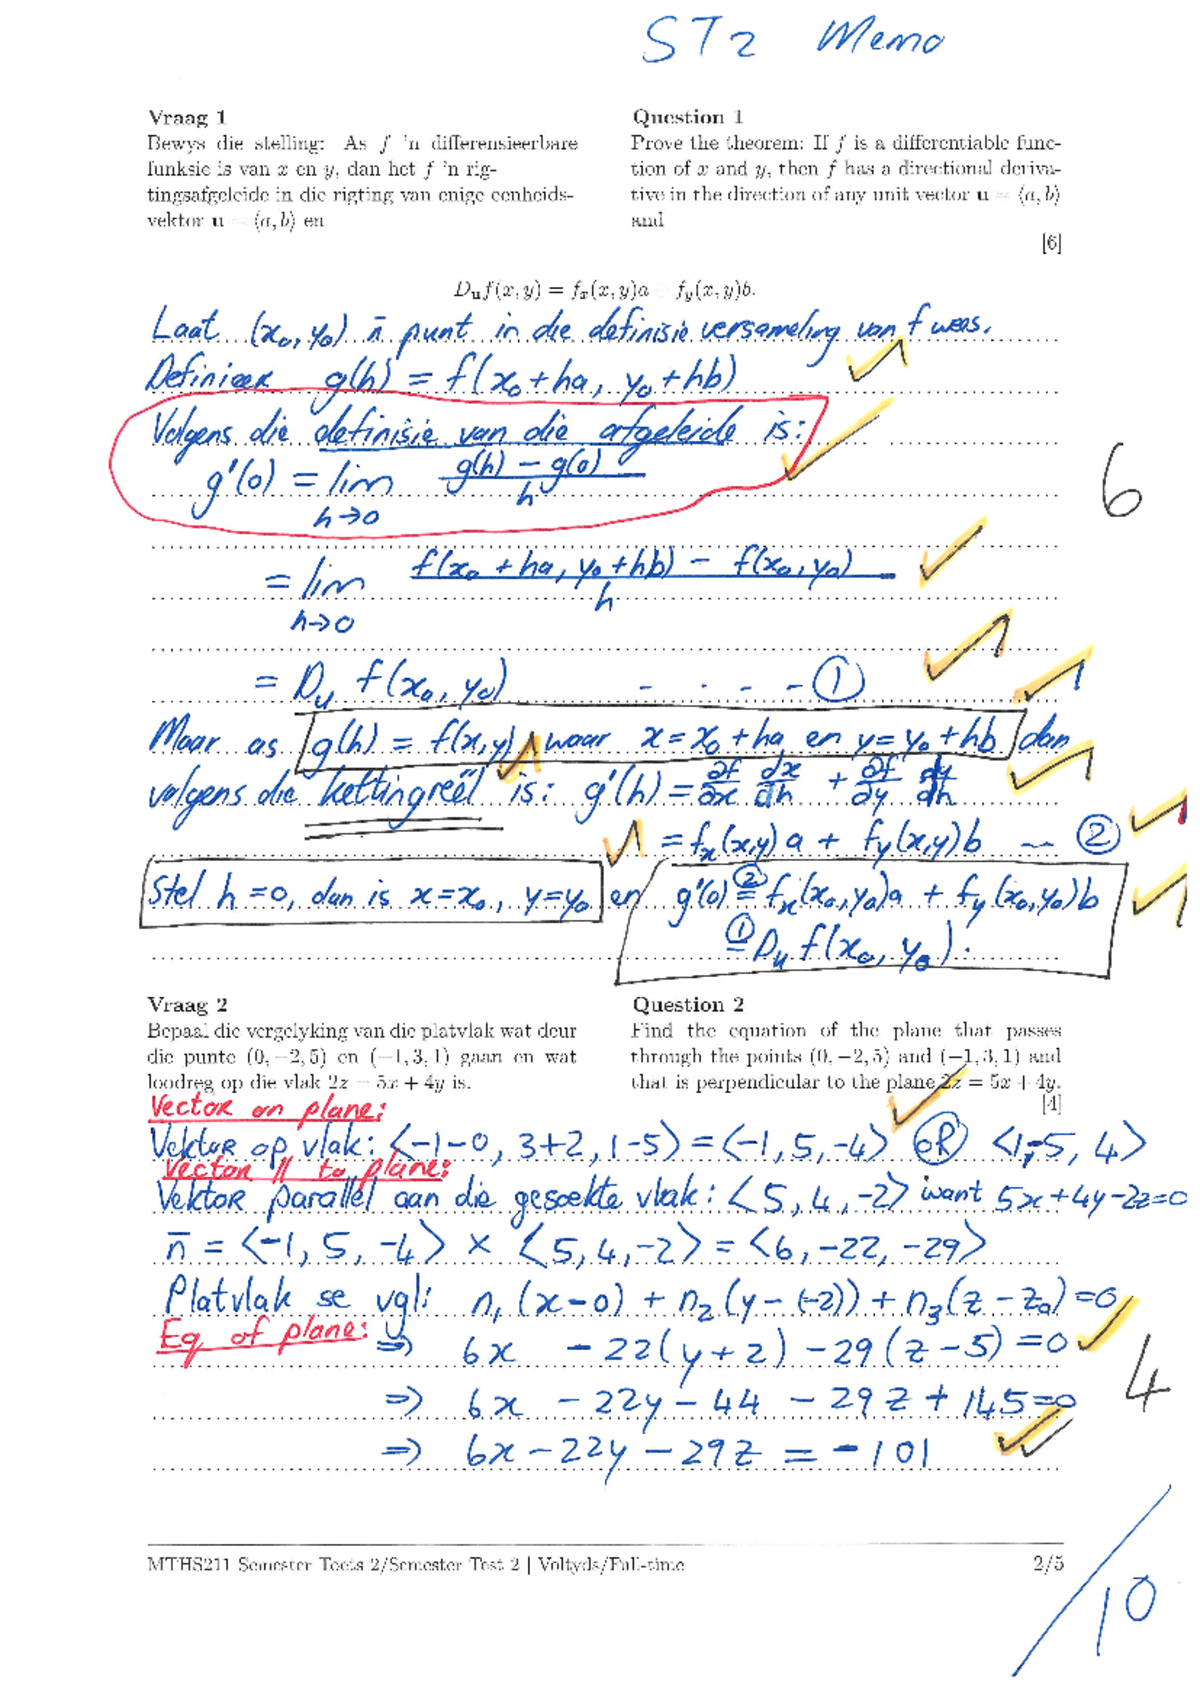 ST2 Memo
Vraag 1
Bewys die stelling: As f 'n differensieerbare
funksie is van x en y, dan het f 'n rig-
tingsafgeleide in die rigting van enige eenheids-
vektor u = ⟨a, b⟩ en
Question 1
Prove the theorem: If f is a differentiable func-
tion of x and y, then f has a directional deriva-
tive in the direction of any unit vector u = ⟨a, b⟩
and
[6]
D_u f(x, y) = f_x(x, y)a + f_y(x, y)b.
Laat (x₀, y₀) 'n punt in die definisie versameling van f wees.
Definieer g(h) = f(x₀+ha, y₀+hb)
Volgens die definisie van die afgeleide is:
g'(0) = lim h→0 (g(h) − g(0))/h
6
= lim h→0 (f(x₀+ha, y₀+hb) − f(x₀, y₀))/h
= D_u f(x₀, y₀) - . . - - ①
Maar as g(h) = f(x,y), waar x = x₀+ha en y = y₀+hb dan
volgens die kettingreël is: g'(h) = ∂f/∂x dx/dh + ∂f/∂y dy/dh
= f_x(x,y)a + f_y(x,y)b -- ②
Stel h=0, dan is x=x₀, y=y₀ en g'(0) ②= f_x(x₀,y₀)a + f_y(x₀,y₀)b
①= D_u f(x₀, y₀).
Vraag 2
Bepaal die vergelyking van die platvlak wat deur
die punte (0, −2, 5) en (−1, 3, 1) gaan en wat
loodreg op die vlak 2z = 5x + 4y is.
Question 2
Find the equation of the plane that passes
through the points (0, −2, 5) and (−1, 3, 1) and
that is perpendicular to the plane 2z = 5x + 4y.
[4]
Vector on plane:
Vektor op vlak: ⟨−1−0, 3+2, 1−5⟩ = ⟨−1, 5, −4⟩ OR ⟨1, −5, 4⟩
Vector // to plane:
Vektor parallel aan die gesoekte vlak: ⟨5, 4, −2⟩ want 5x+4y−2z=0
n̄ = ⟨−1, 5, −4⟩ × ⟨5, 4, −2⟩ = ⟨6, −22, −29⟩
Platvlak se vgl: n₁(x−0) + n₂(y−(−2)) + n₃(z−z₀) = 0
Eq of plane:
⇒ 6x − 22(y+2) − 29(z−5) = 0
4
⇒ 6x − 22y − 44 − 29z + 145 = 0
⇒ 6x − 22y − 29z = −101
MTHS211 Semester Toets 2/Semester Test 2 | Voltyds/Full-time
2/5
/10